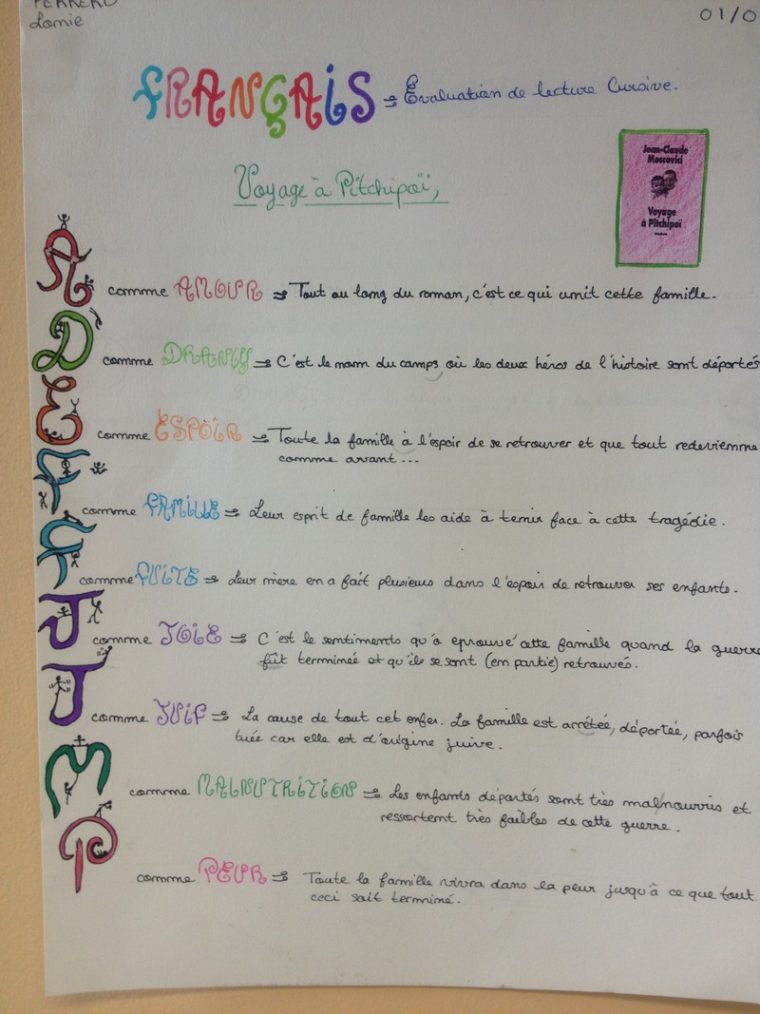 Lamie
01/0
FRANÇAIS => Évaluation de lecture Cursive.
Voyage à Pitchipoï,
Jean-Claude
Moscovici
Voyage
à Pitchipoï
A comme AMOUR => Tout au long du roman, c'est ce qui unit cette famille.
D comme DRANCY => C'est le nom du camps où les deux héros de l'histoire sont déportés
E comme ESPOIR => Toute la famille à l'espoir de se retrouver et que tout redevienne
comme avant...
F comme FAMILLE => Leur esprit de famille les aide à tenir face à cette tragédie.
F comme FUITE => Leur mère en a fait plusieurs dans l'espoir de retrouver ses enfants.
J comme JOIE => C'est le sentiments qu'a éprouvé cette famille quand la guerre
fût terminée et qu'ils se sont (en partie) retrouvés.
J comme JUIF => La cause de tout cet enfer. La famille est arrêtée, déportée, parfois
tuée car elle est d'origine juive.
M comme MALNUTRITION => Les enfants déportés sont très malnourris et
ressortent très faibles de cette guerre.
P comme PEUR => Toute la famille vivra dans la peur jusqu'à ce que tout
ceci soit terminé.